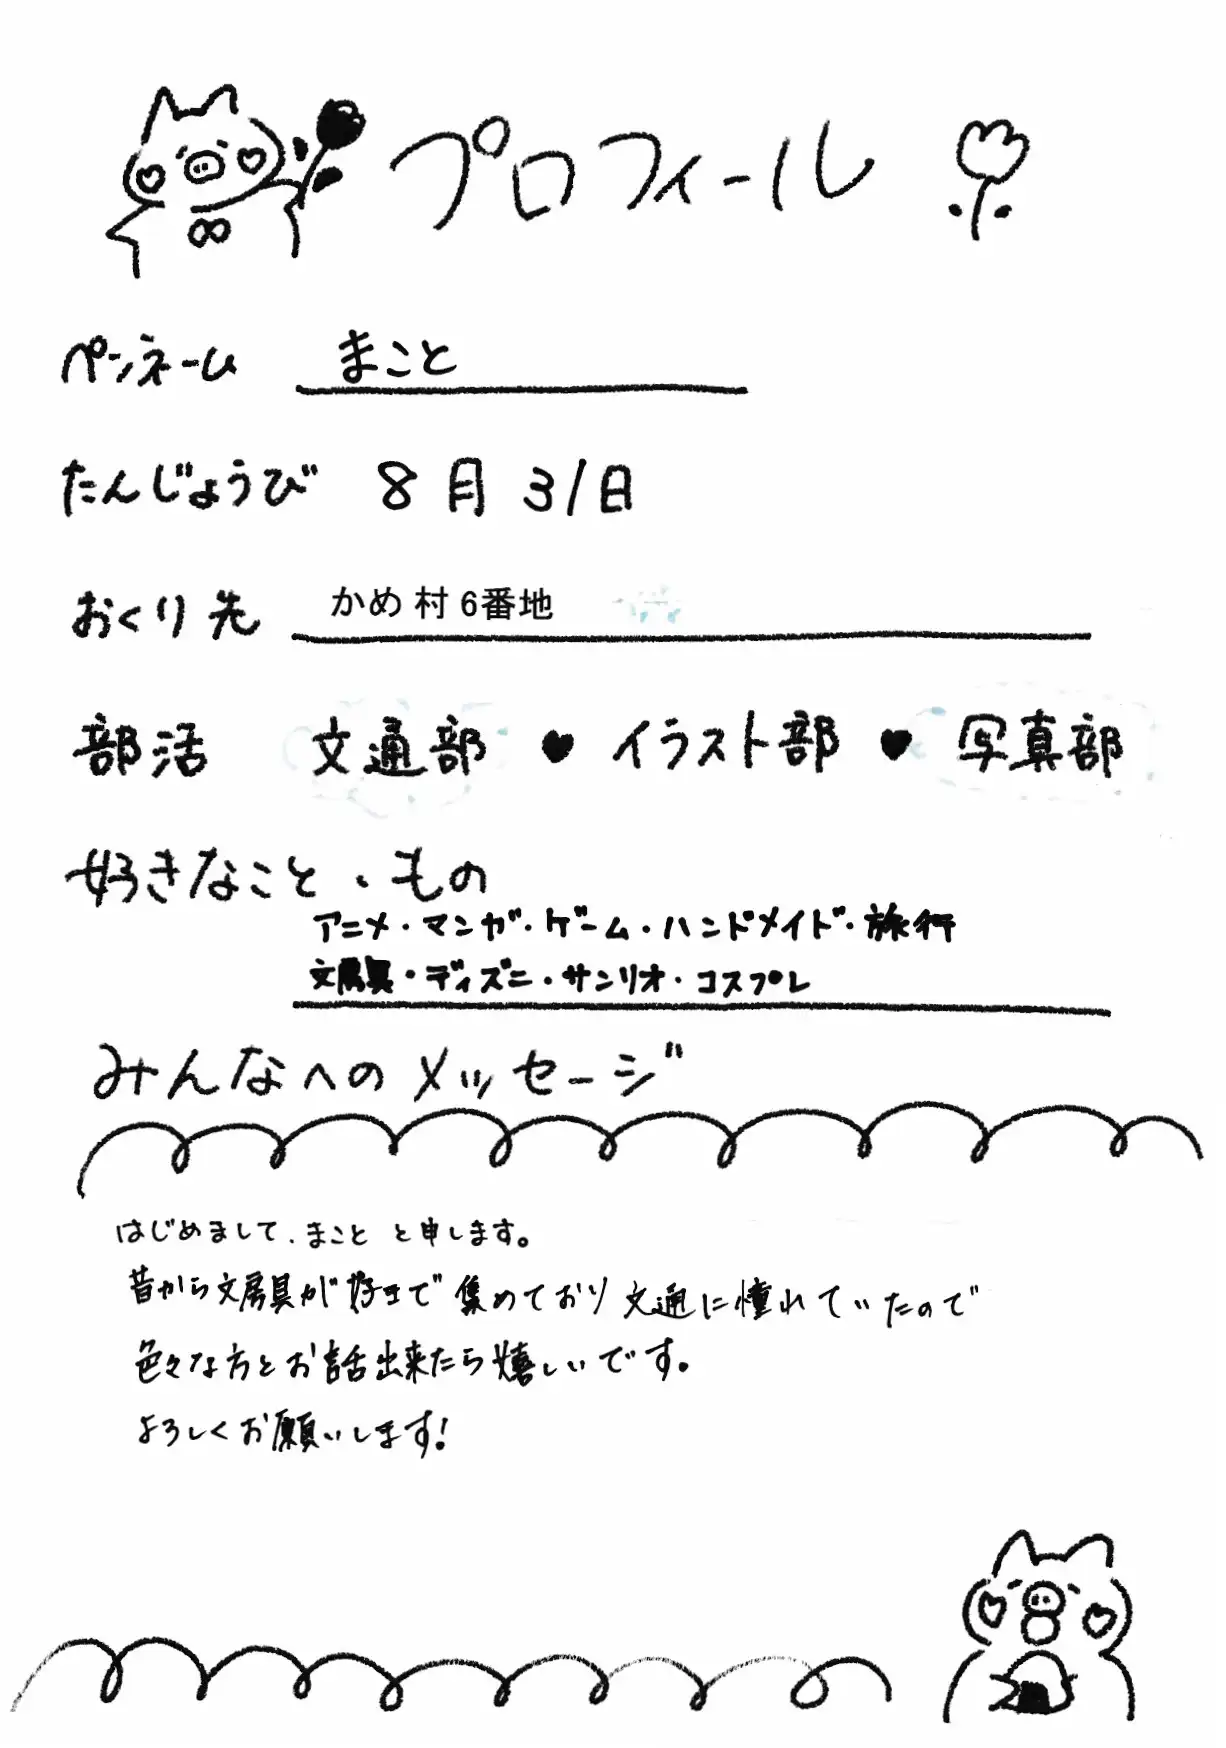 プロフィール
ペンネーム まこと
たんじょうび 8月31日
おくり先 かめ村6番地
部活 文通部♥イラスト部♥写真部
好きなこと、もの
アニメ・マンガ・ゲーム・ハンドメイド・旅行
文房具・ディズニ・サンリオ・コスプレ
みんなへのメッセージ
はじめまして、まこと と申します。
昔から文房具が好きで集めており文通に憧れていたので
色々な方とお話出来たら嬉しいです。
よろしくお願いします!